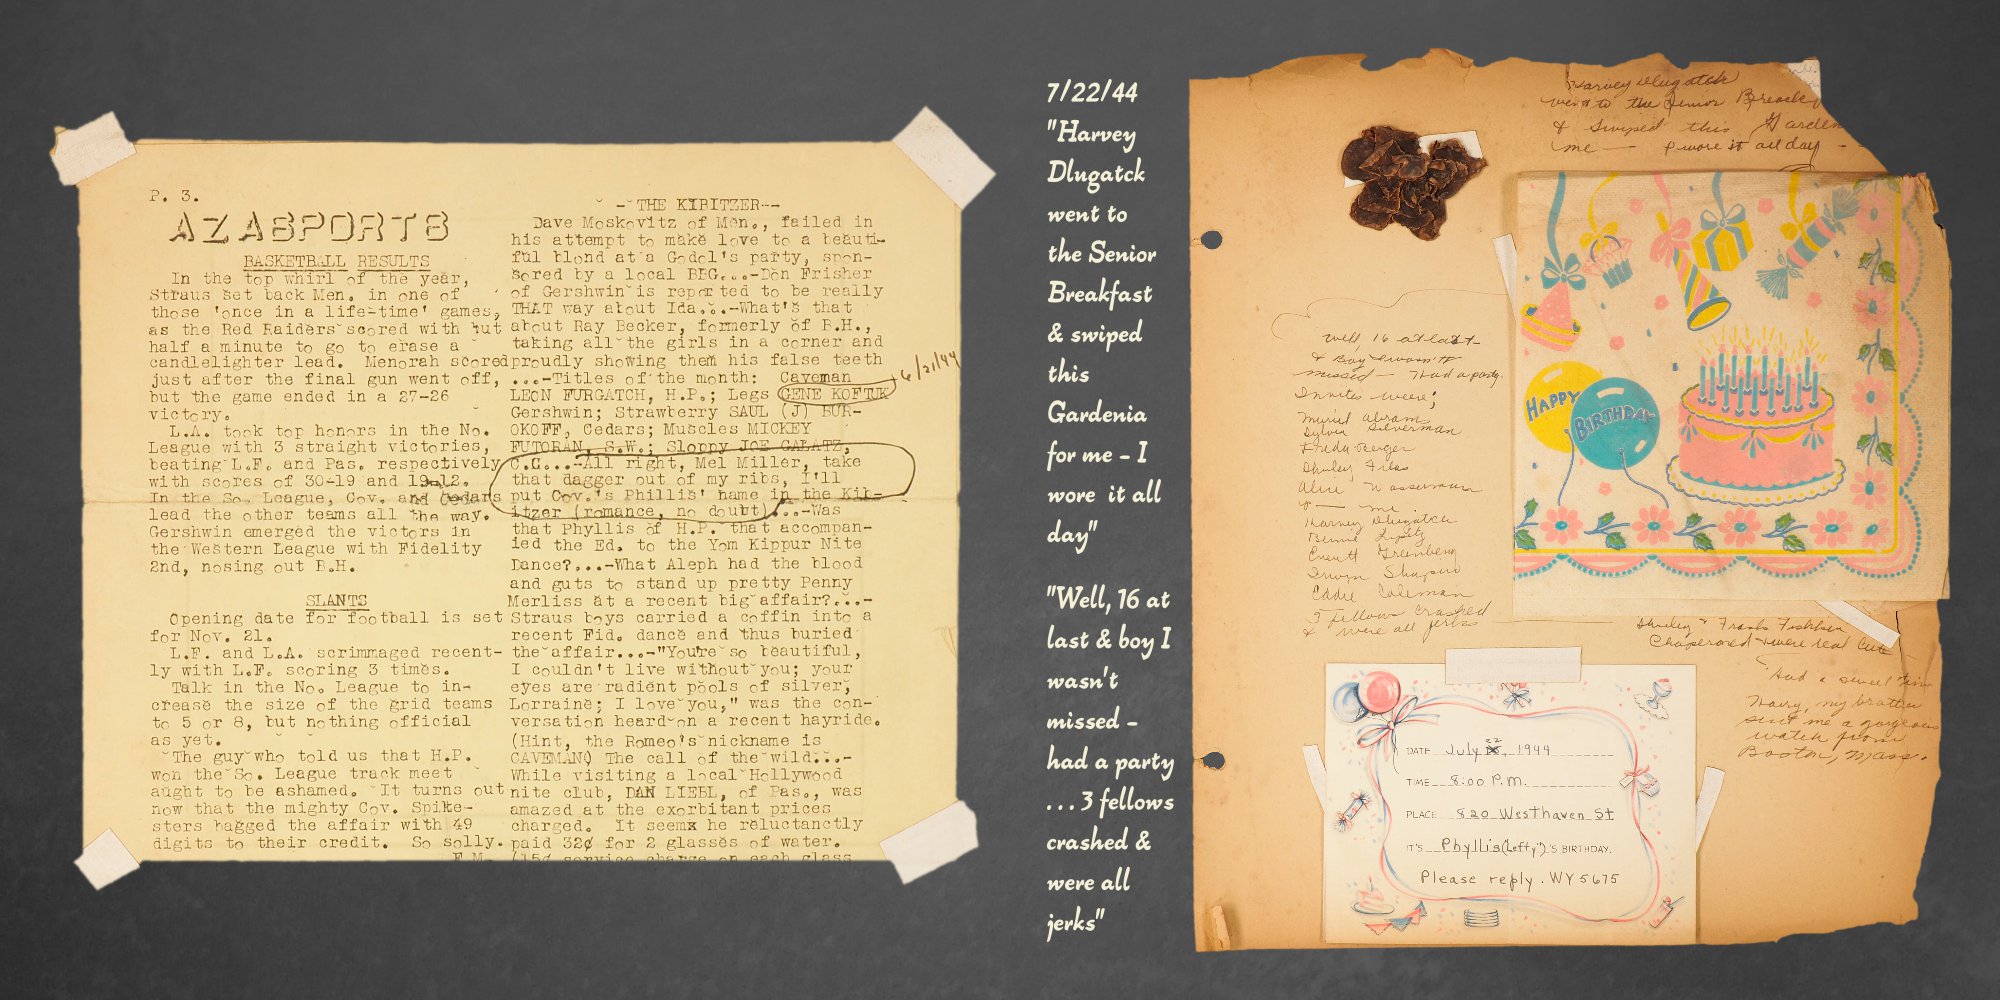 P. 3.
AZASPORTS
BASKETBALL RESULTS
In the top whirl of the year,
Straus set back Men. in one of
those 'once in a life-time' games,
as the Red Raiders scored with but
half a minute to go to erase a
candlelighter lead. Menorah scored
just after the final gun went off,
but the game ended in a 27-26
victory.
L.A. took top honors in the No.
League with 3 straight victories,
beating L.F. and Pas. respectively
with scores of 30-19 and 19-12.
In the So. League, Cov. and Cedars
lead the other teams all the way.
Gershwin emerged the victors in
the Western League with Fidelity
2nd, nosing out B.H.
SLANTS
Opening date for football is set
for Nov. 21.
L.F. and L.A. scrimmaged recent-
ly with L.F. scoring 3 times.
Talk in the No. League to in-
crease the size of the grid teams
to 5 or 8, but nothing official
as yet.
The guy who told us that H.P.
won the So. League track meet
aught to be ashamed. It turns out
now that the mighty Cov. Spike-
sters bagged the affair with 49
digits to their credit. So solly.
F.M.
--THE KIBITZER--
Dave Moskovitz of Men., failed in
his attempt to make love to a beauti-
ful blond at a Godol's party, spon-
sored by a local BBG...-Don Frisher
of Gershwin is reported to be really
THAT way about Ida...-What's that
about Ray Becker, formerly of B.H.,
taking all the girls in a corner and
proudly showing them his false teeth
...-Titles of the month: Caveman
LEON FURGATCH, H.P.; Legs GENE KOFTUK
6/21/44
Gershwin; Strawberry SAUL (J) BUR-
OKOFF, Cedars; Muscles MICKEY
FUTORAN, S.W.; Sloppy JOE GALATZ,
C.C...-All right, Mel Miller, take
that dagger out of my ribs, I'll
put Cov.'s Phillis' name in the Kib-
itzer (romance, no doubt)...-Was
that Phyllis of H.P. that accompan-
ied the Ed. to the Yom Kippur Nite
Dance?...-What Aleph had the blood
and guts to stand up pretty Penny
Merliss at a recent big affair?...-
Straus boys carried a coffin into a
recent Fid. dance and thus buried
the affair...-"You're so beautiful,
I couldn't live without you; your
eyes are radient pools of silver,
Lorraine; I love you," was the con-
versation heard on a recent hayride.
(Hint, the Romeo's nickname is
CAVEMAN) The call of the wild...-
While visiting a local Hollywood
nite club, DAN LIEBL, of Pas., was
amazed at the exorbitant prices
charged. It seems he reluctantly
paid 32¢ for 2 glasses of water.
(15¢ service charge on each glass
7/22/44
"Harvey
Dlugatck
went to
the Senior
Breakfast
& swiped
this
Gardenia
for me - I
wore it all
day"
"Well, 16 at
last & boy I
wasn't
missed -
had a party
...3 fellows
crashed &
were all
jerks"
Harvey Dlugatch
went to the Senior Breakf
& swiped this Garden
me — I wore it all day -
Well, 16 at last
& Boy I wasn't
missed - Had a party.
Invites were;
Muriel Abram
Sylvia Silverman
Freda Berger
Shirley Friss
Alice Wasserman
& — me
Harvey Dlugatch
Bennie
Everett Greenberg
Irwin Shapiro
Eddie Coleman
3 fellows crashed
& were all jerks
HAPPY
BIRTHDAY
Shirley & Frank Fishken
Chaperoned & were real cute
Had a swell time
Harry, my brother
sent me a gorgeous
watch from
Boston, Mass.
DATE July 22, 1944
TIME 8:00 P.M.
PLACE 820 Westhaven St
IT'S Phyllis (Lefty)'S BIRTHDAY.
Please reply. WY 5675